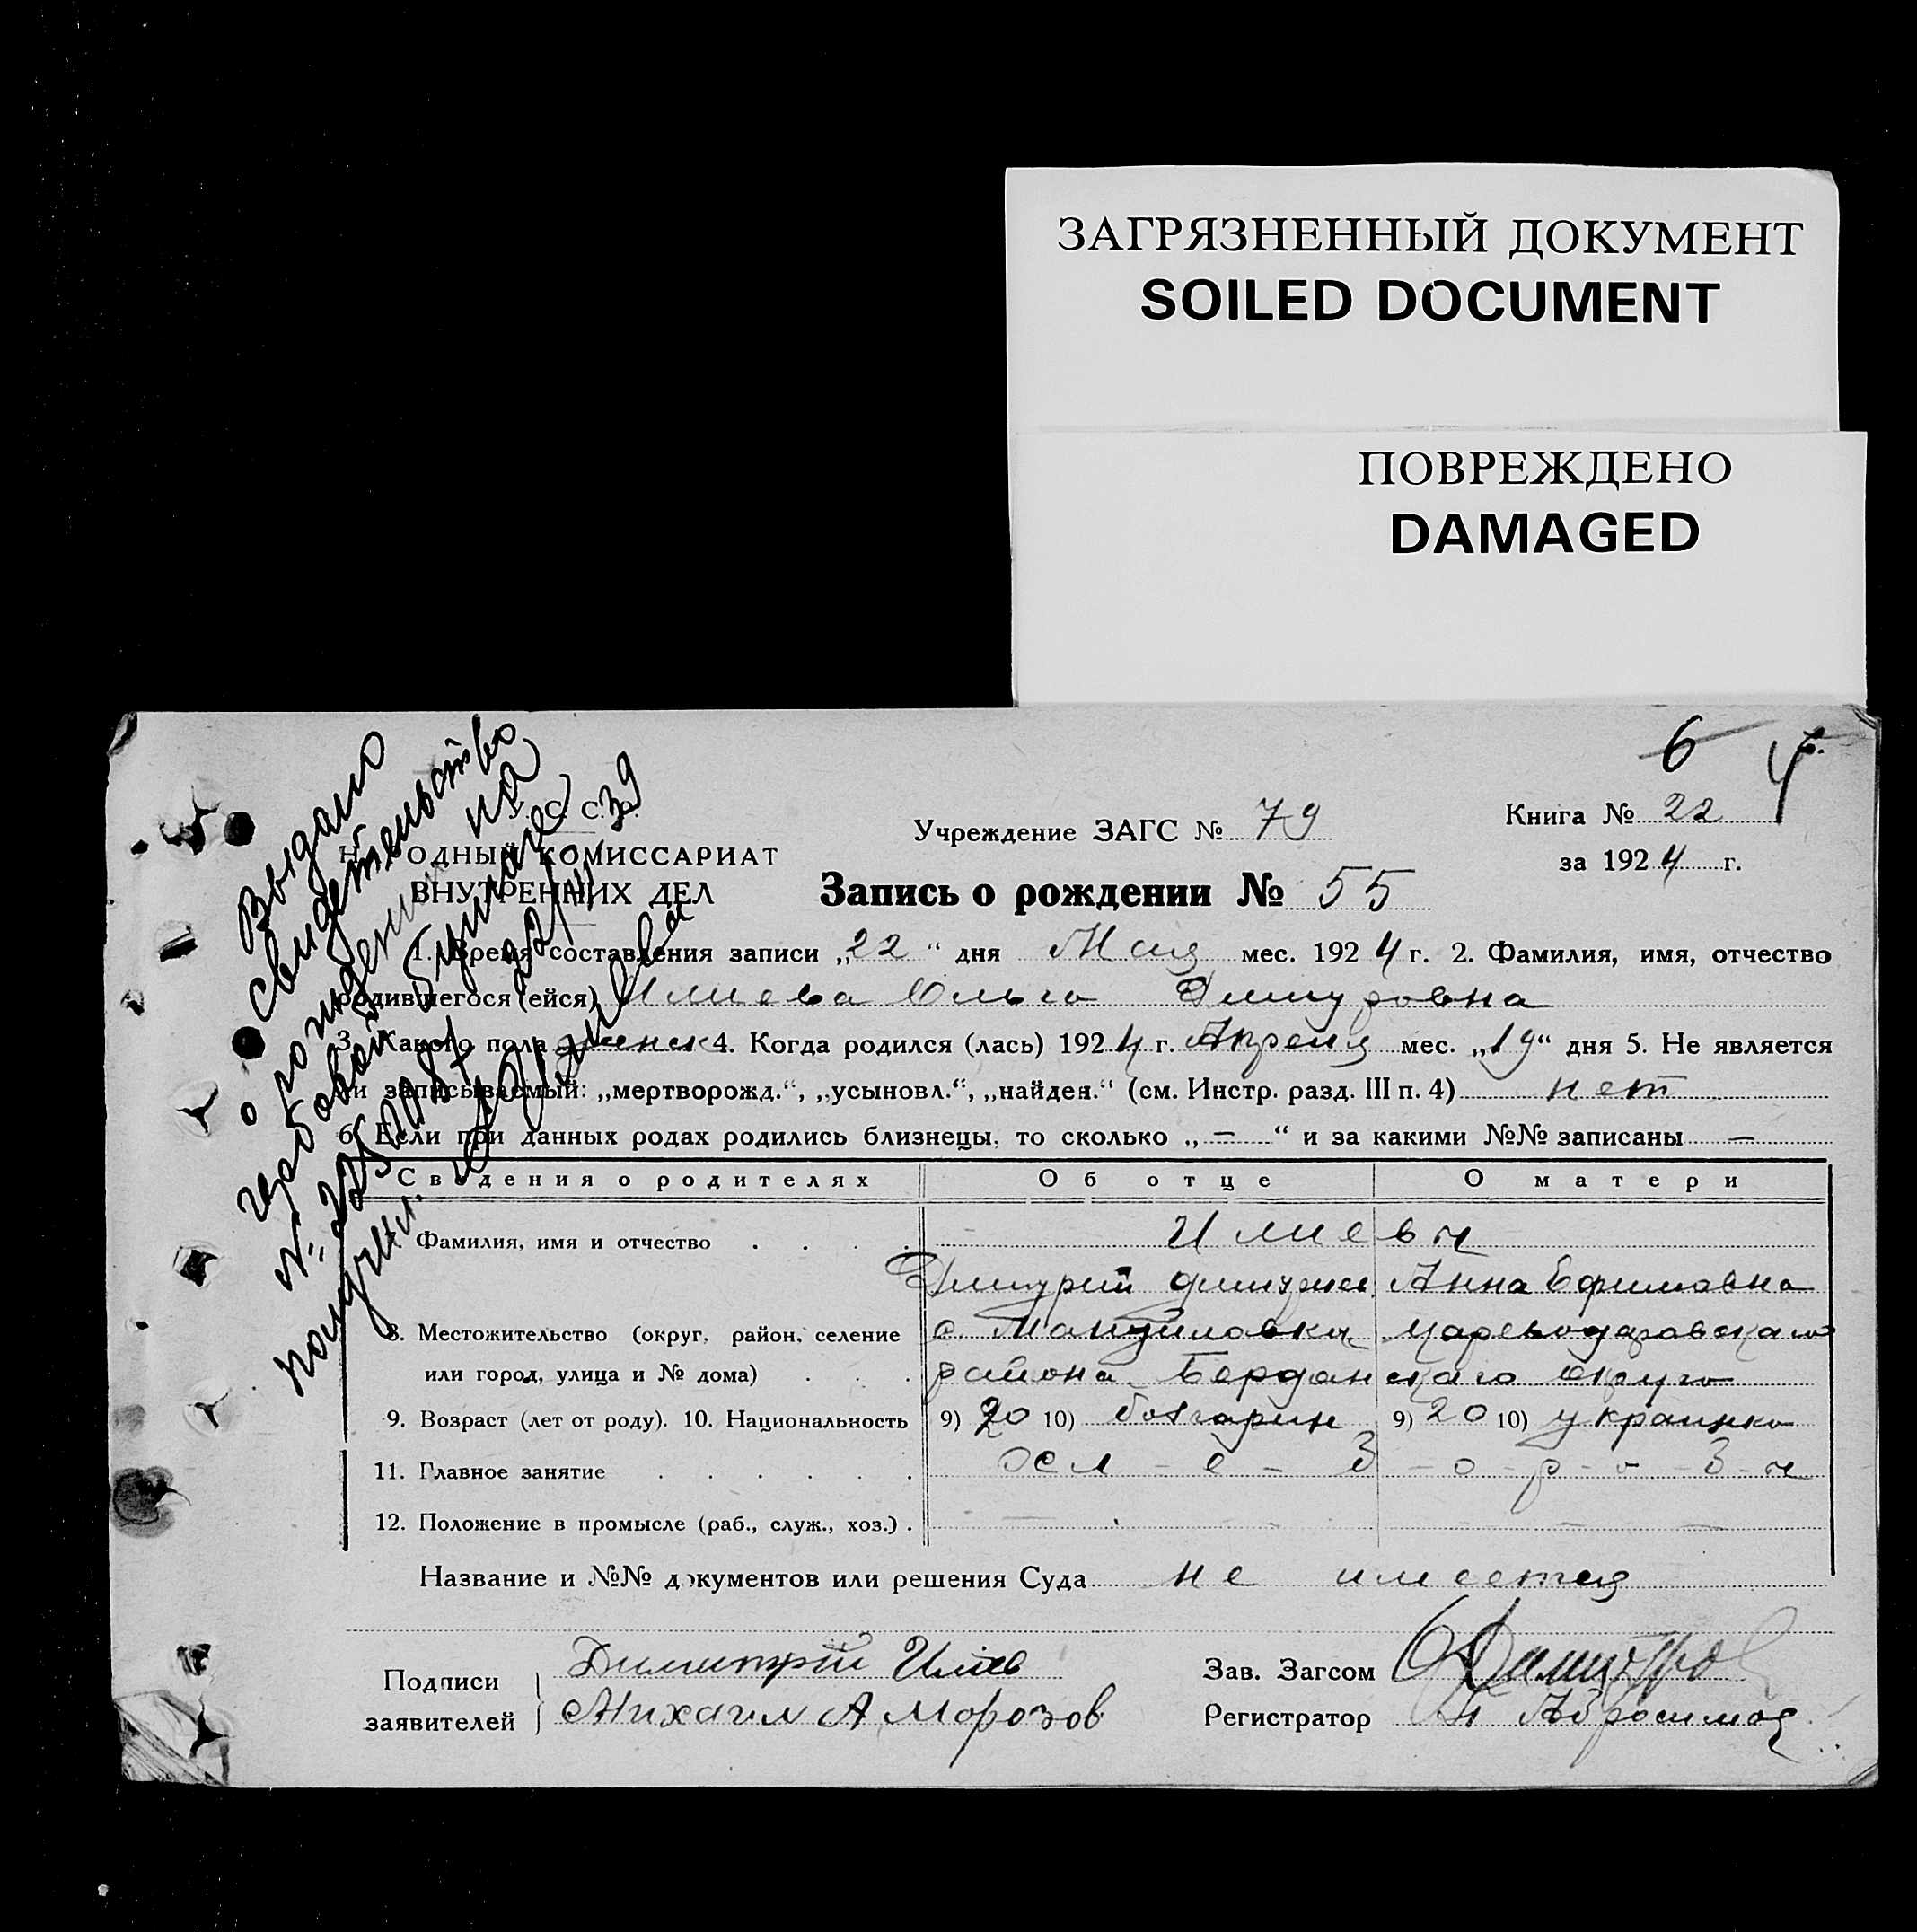 ЗАГРЯЗНЕННЫЙ ДОКУМЕНТ
SOILED DOCUMENT
ПОВРЕЖДЕНО
DAMAGED
6 4
Выдано
свидетельство
о рождении на
гербовой бумаге
№
получил
Учреждение ЗАГС № 79
Книга № 22
за 1924 г.
НАРОДНЫЙ КОМИССАРИАТ
ВНУТРЕННИХ ДЕЛ
Запись о рождении № 55
1. Время составления записи „22“ дня Мая мес. 1924 г. 2. Фамилия, имя, отчество
родившегося (ейся) Илиева Ольга Дмитровна
3. Какого пола женск 4. Когда родился (лась) 1924 г. Апреля мес. „19“ дня 5. Не является
ли записываемый: „мертворожд.“, „усыновл.“, „найден.“ (см. Инстр. разд. III п. 4) нет
6. Если при данных родах родились близнецы, то сколько „ — “ и за какими №№ записаны —
Сведения о родителях Об отце О матери
Фамилия, имя и отчество Илиевы
Дмитрий Анна Ефимовна
8. Местожительство (округ, район, селение с. Мануиловка
или город, улица и № дома) района Бердянского округа
9. Возраст (лет от роду). 10. Национальность 9) 20 10) болгарин 9) 20 10) украинка
11. Главное занятие
12. Положение в промысле (раб., служ., хоз.) . — —
Название и №№ документов или решения Суда не имеется
Подписи
заявителей
Димитрий Илиев
Михаил А Морозов
Зав. Загсом
Регистратор